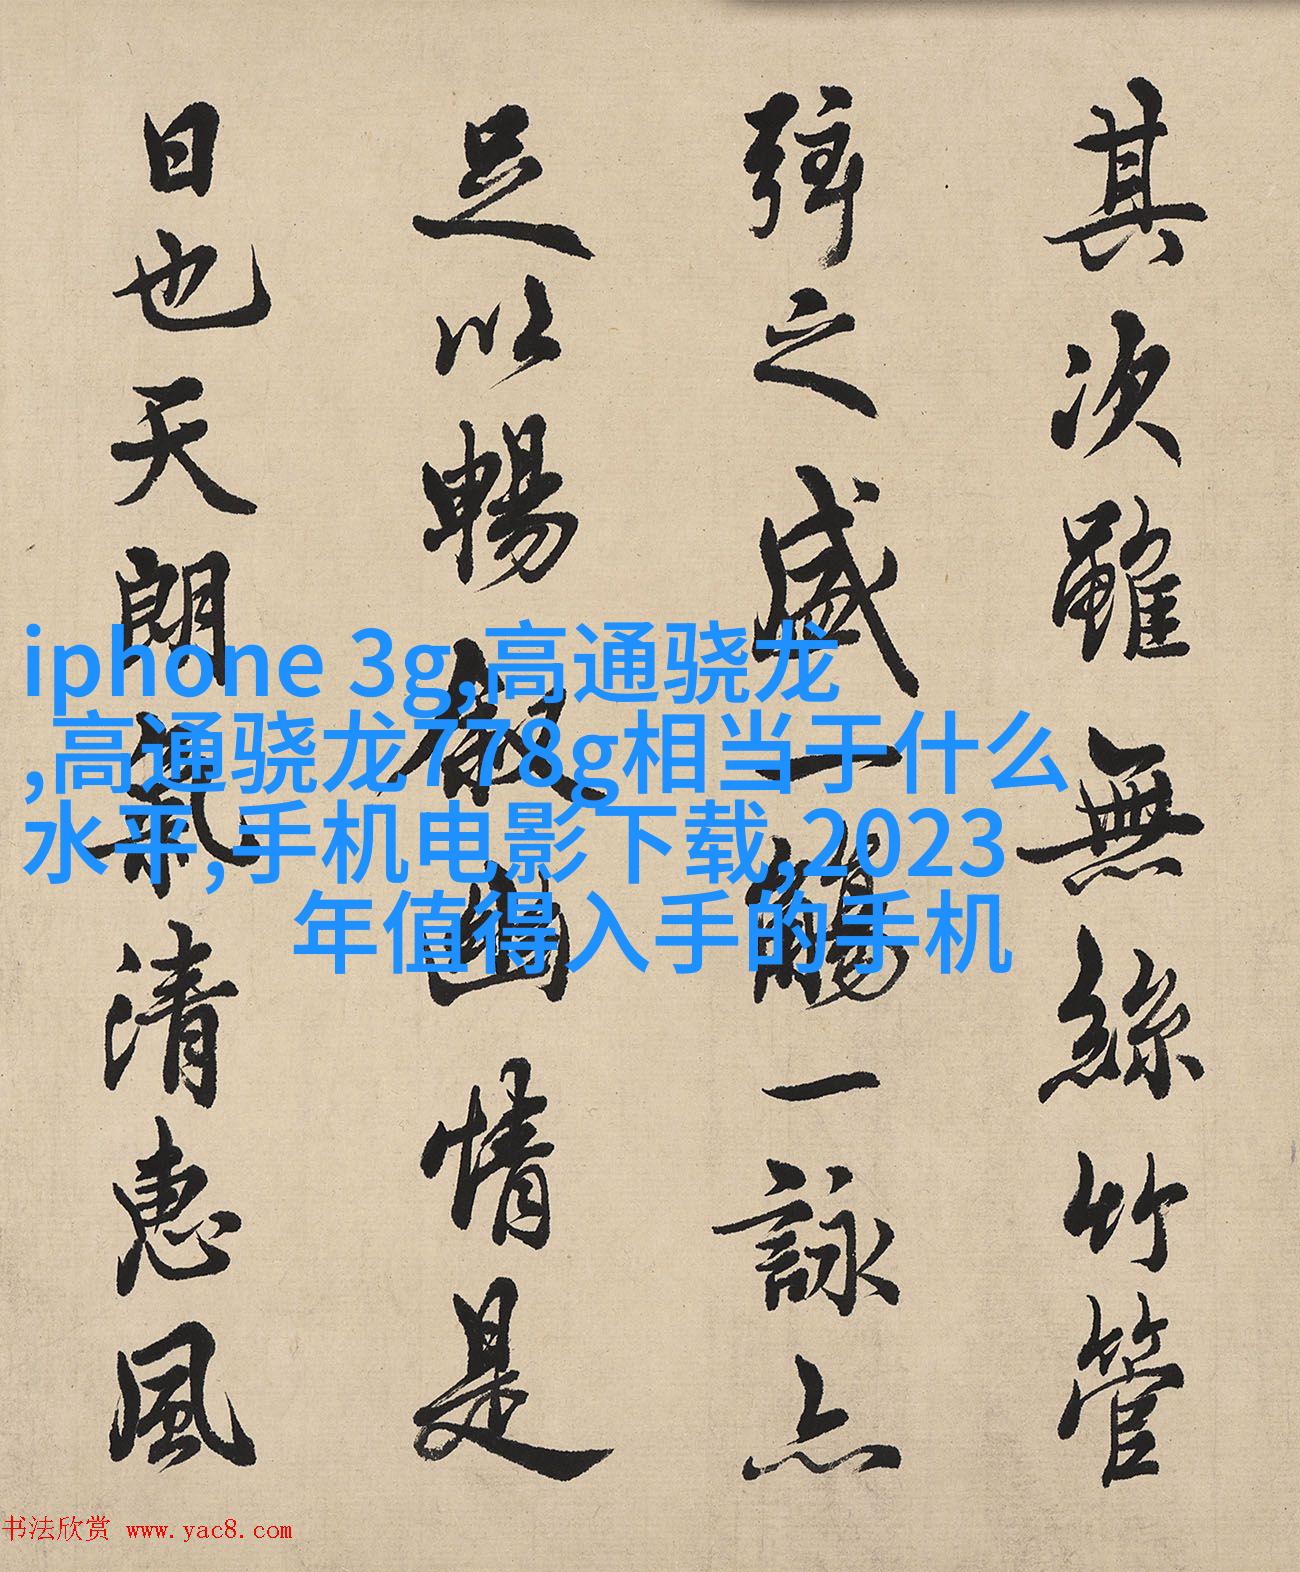 其次雖無絲竹管
弦之盛一觴一詠亦
足以暢敘幽情是
日也天朗氣清惠風
iphone 3g,高通骁龙
,高通骁龙778g相当于什么
水平,手机电影下载,2023
年值得入手的手机
书法欣赏 www.yac8.com